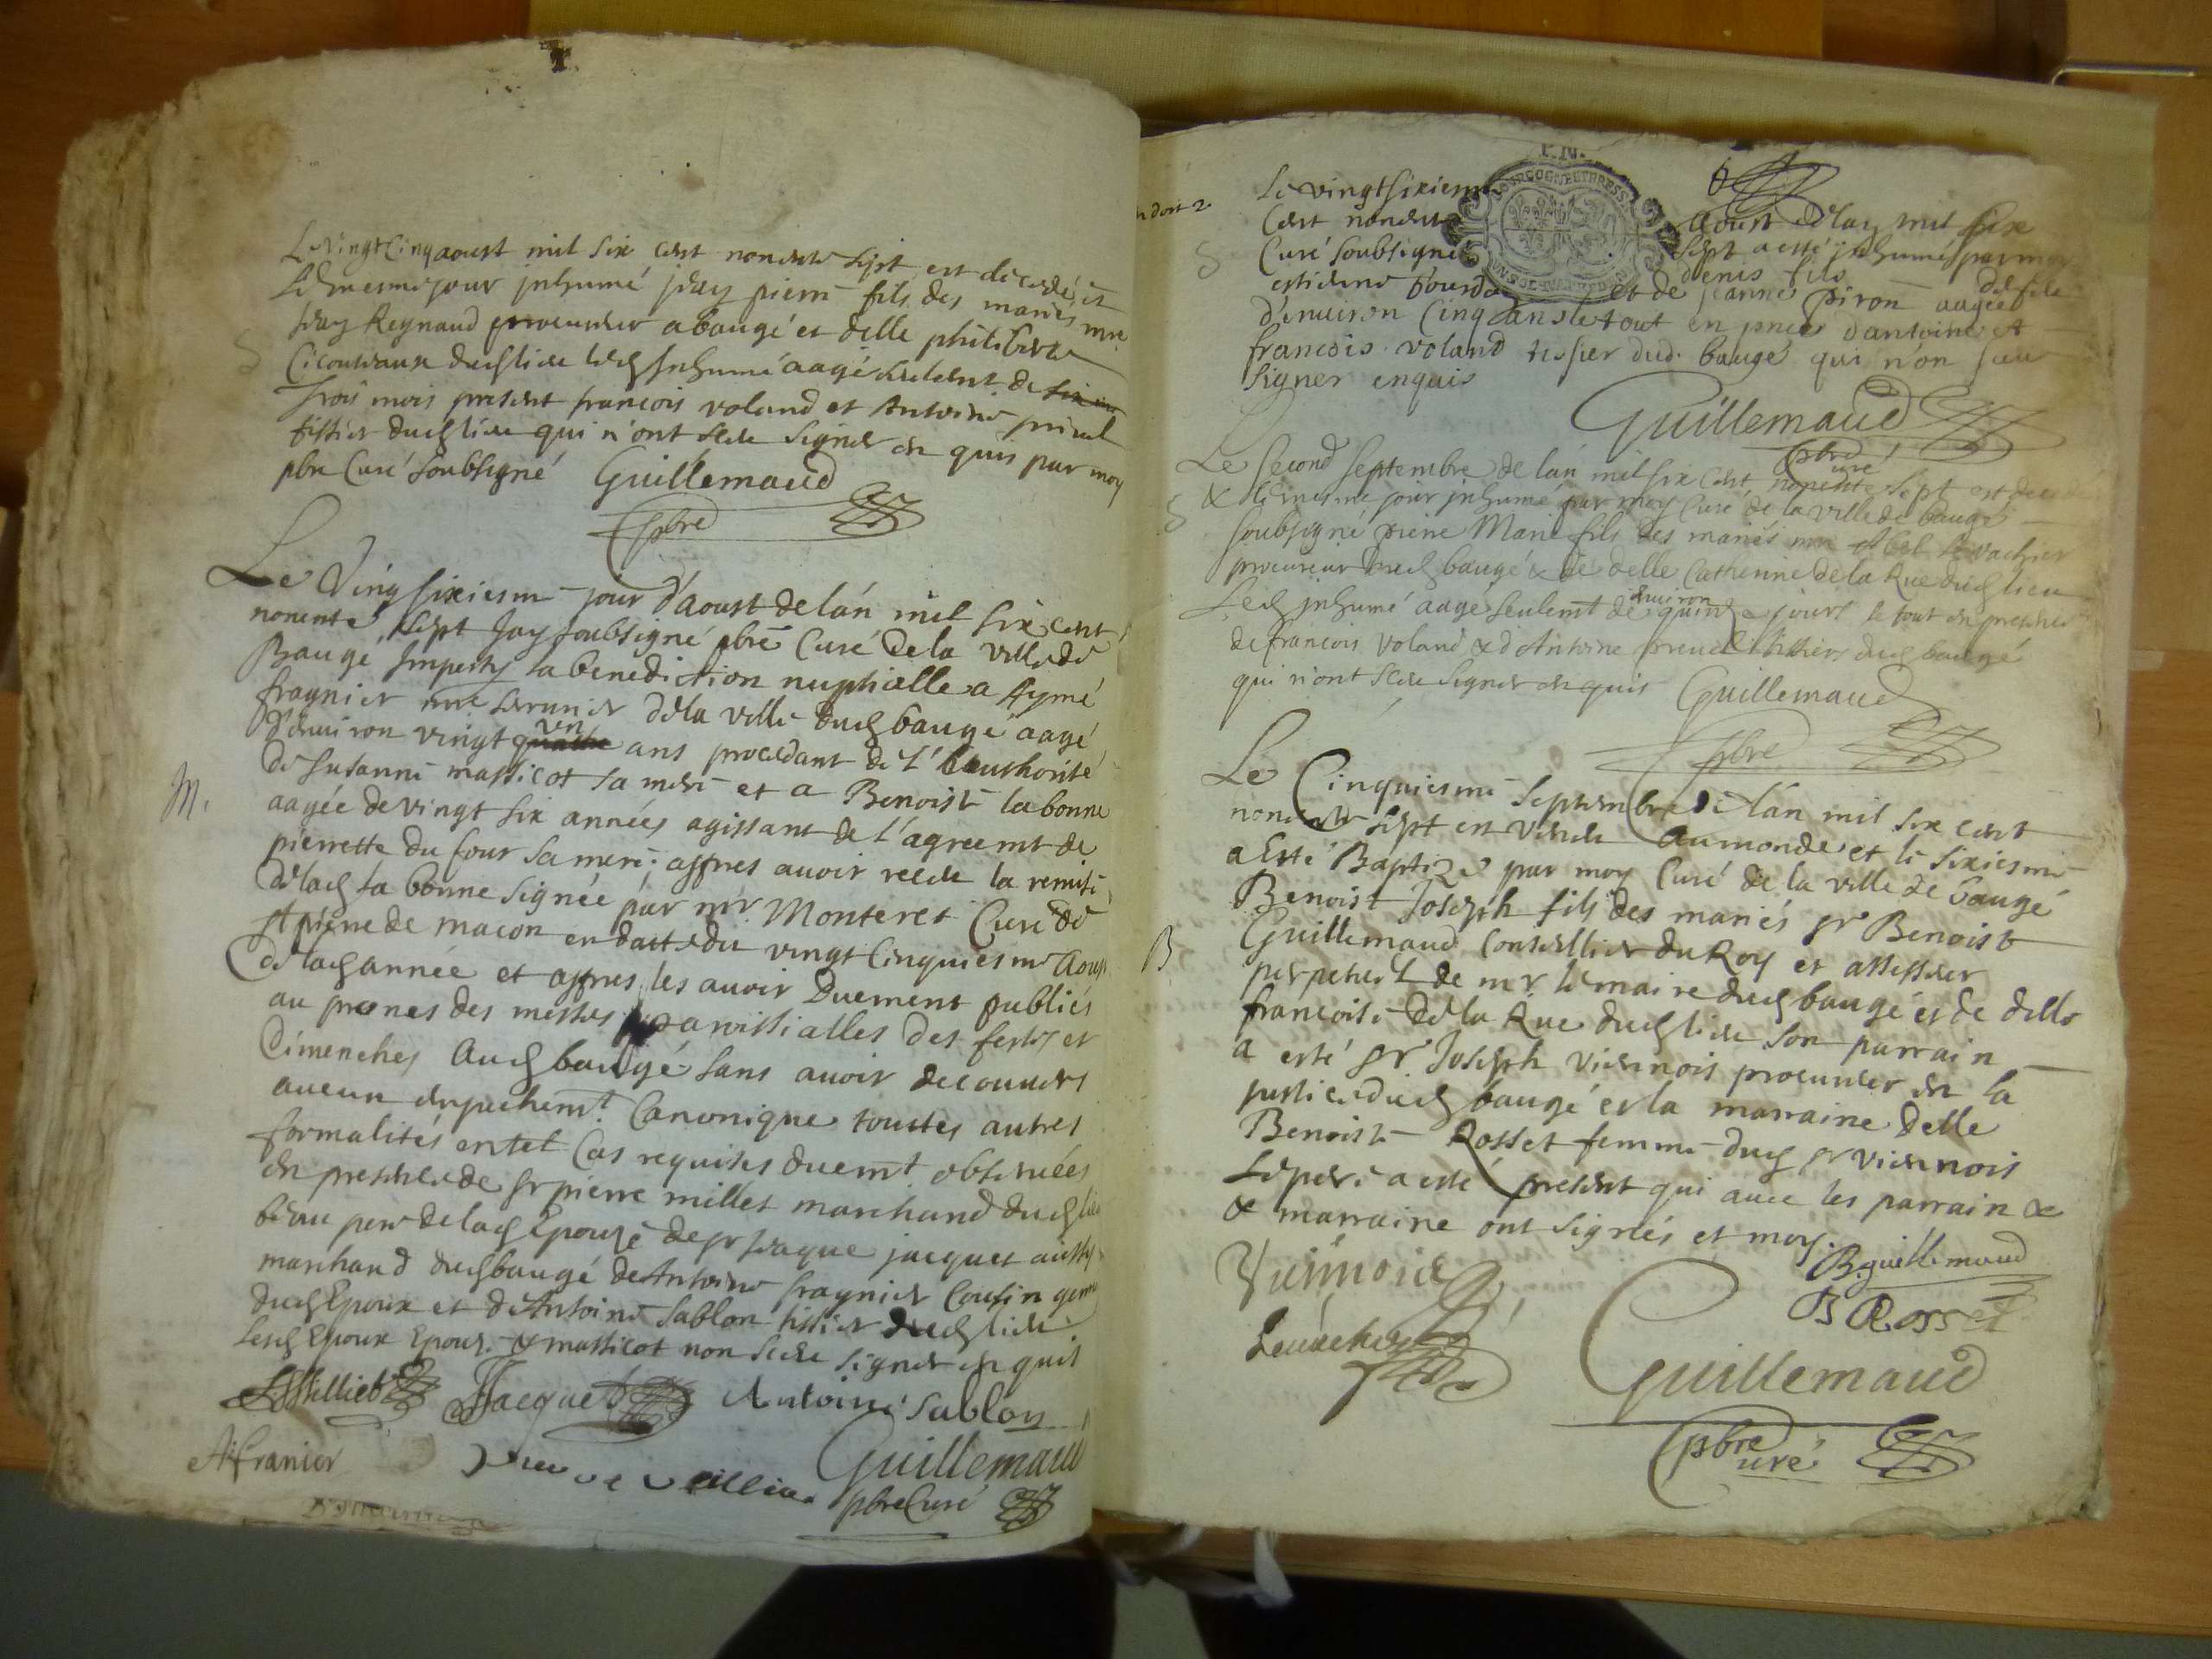 Le Vingt Cinq aoust mil six cent nonente sept est decedé et
le mesme jour inhumé jean pierre fils des mariés mre
jean Reynaud procureur a baugé et delle philiberte
dud lieu led Inhumé aagé seulement de
trois mois present francois voland et Antoine preuel
tissier dud lieu qui n'ont sceu signer en quis par moy
pbre Curé soubsigné Guillemaud
pbre
Le Ving sixiesme jour d'aoust de lan mil six cent
nonente sept Jay soubsigné pbre Curé de la ville de
Baugé Imparty la benediction nuptialle a Aymé
fragnier mre serrurier de la ville dud baugé aagé
d'enuiron vingt un ans procedant de l'authorité
M. de susanne massicot sa mere et a Benoiste labonne
aagée de vingt six années agissant de l'agreemt de
pierrette du four sa mere; apres auoir receu la remise
de lad la bonne signée par mr. Monteret Curé de
st pierre de macon en datte du vingt Cinquiesme Aoust
de lad année et apres les auoir Duement publiés
au prones des messes paroissialles des festes et
Dimenches Aud baugé sans auoir decouuert
aucun empechemt. Canonique touttes autres
formalités en tel Cas requises duemt. obseruées
en presence de sr pierre millet marchand dud lieu
beau pere de lad Epouse de sr jaque jacquet aussy
marchand dud baugé de Antoine fragnier Cousin germ
dud Epoux et de Antoine Sablon tissier dud lieu
lesd Epoux Epous. & massicot non sceu signer en quis
Milliet Jacquet Antoine Sablon
A. franier Guillemaud
pbre Curé
Le vingt sixiesme aoust de lan mil six
Cent nonente sept a esté inhumé par moy
Curé soubsigné denis fils
et de jeanne Piron aagée
d'enuiron Cinq ans le tout en pnce d'antoine et
francois voland tissier dud. baugé qui n'on sceu
signer enquis
Guillemaud
pbre curé
Le second septembre de lan mil six cent nonente sept est decedé
& le mesme jour inhumé par moy Curé de la ville de baugé
soubsigné pierre Marie fils des mariés mre Abel Leuachier
procureur aud baugé & de delle Catherine de la Rue dud lieu
Led inhumé aagé seulemt de enuiron quinze jours le tout en presence
de francois Voland & d'Antoine preuel tissiers dud baugé
qui n'ont sceu signer en quis Guillemaud
pbre
Le Cinquiesme septembre de lan mil six cent
nonente sept est venu au monde et le sixiesme
a Esté Baptizé par moy Curé de la ville de baugé
Benoist Joseph fils des mariés sr Benoist
B Guillemaud Conseillier du Roy et assesseur
perpetuel de mr le maire dud baugé et de delle
francoise de la Rue dud lieu son parrain
a esté sr. Joseph Viennois procureur en la
justice dud baugé et la marraine delle
Benoiste Rosset femme dud sr viennois
Le pere a esté present qui auec les parrain &
& marraine ont signés et moy.
Viennois B. guillemaud
B Rosset
Guillemaud
pbre curé